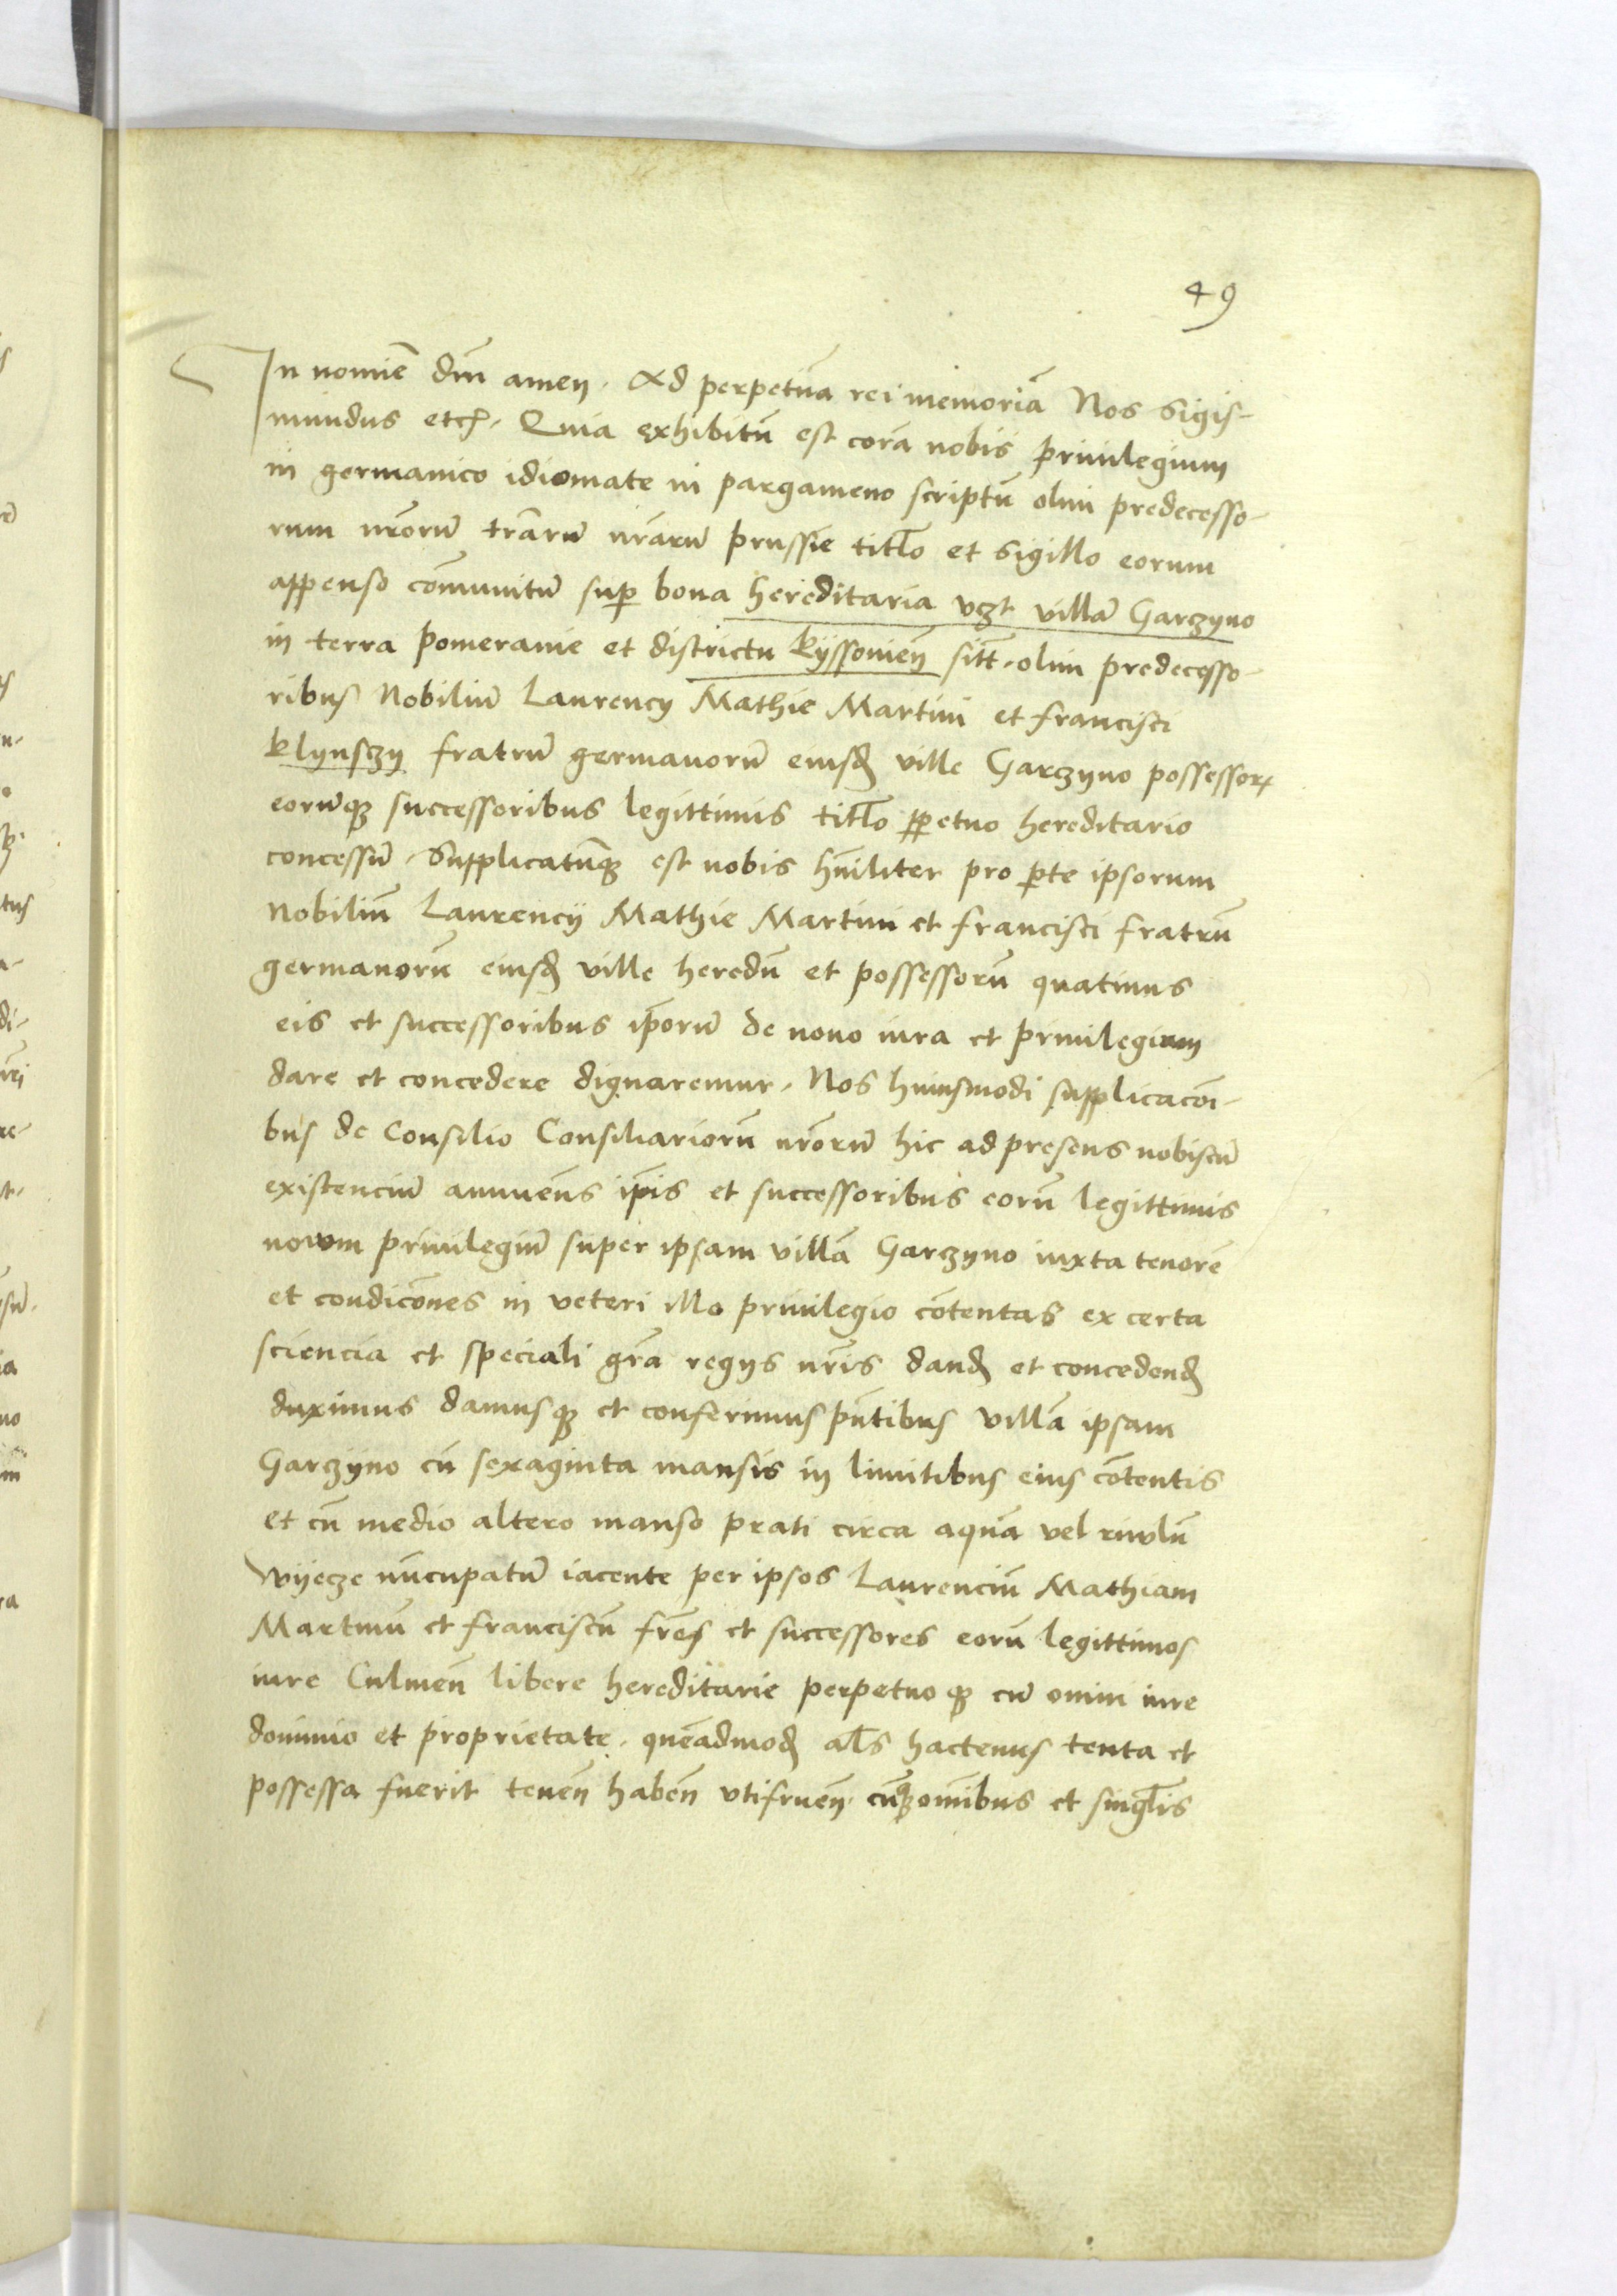 49
In nomīe dn̄i amen. Ad perpetuā rei memoriā Nos Sigis-
mundus etc̄. Quia exhibitū est corā nobis priuilegium
in germanico idiomate in pargameno scriptū olim predecesso-
rum nr̄orū tr̄arū nr̄arū prussie titl̄o et sigillo eorum
appenso com̄unitū sup̱ bona hereditaria vꝫt villā Garczyno
in terra Pomeranie et districtu Kyssouien̄ sitt̄. olim predecesso-
ribus Nobiliū Laurencÿ Mathie Martini et francisci
Klynsczÿ fratrū germanorū eiusđ ville Garczyno possessoꝝ
eorūqꝫ successoribus legittimis titl̄o ꝑpetuo hereditario
concessū. Supplicatūqꝫ est nobis hūiliter pro ꝑte ipsorum
Nobiliū Laurencÿ Mathie Martini et francisci fratrū
germanorū eiusđ ville heredū et possessorū quatinus
eis et successoribus ip̄orū de nouo iura et priuilegium
dare et concedere dignaremur. Nos huiusmodi supplicacōi-
bus de Consilio Consiliariorū nr̄orū hic ad presens nobiscū
existenciū annuen̄s ip̄is et successoribus eorū legittimis
nouum priuilegiū super ipsam villā Garczyno iuxta tenorē
et condicōnes in veteri illo priuilegio cōtentas ex certa
sciencia et speciali gr̄a regÿs nr̄is danđ et concedenđ
duximus damusqꝫ et conferimus pn̄tibus villā ipsam
Garczÿno cū sexaginta mansis in limitibus eius cōtentis
et cū medio altero manso prati circa aquā vel riuulū
Wÿecze nūcupatū iacente per ipsos Laurenciū Mathiam
Martinū et franciscū fr̄es et successores eorū legittimos
iure Culmen̄ libere hereditarie perpetuoqꝫ cū omni iure
dominio et proprietate. quēadmođ al̄s hactenus tenta et
possessa fuerit tenen̄ haben̄ vtifruen̄. cūqꝫ om̄ibus et singl̄is